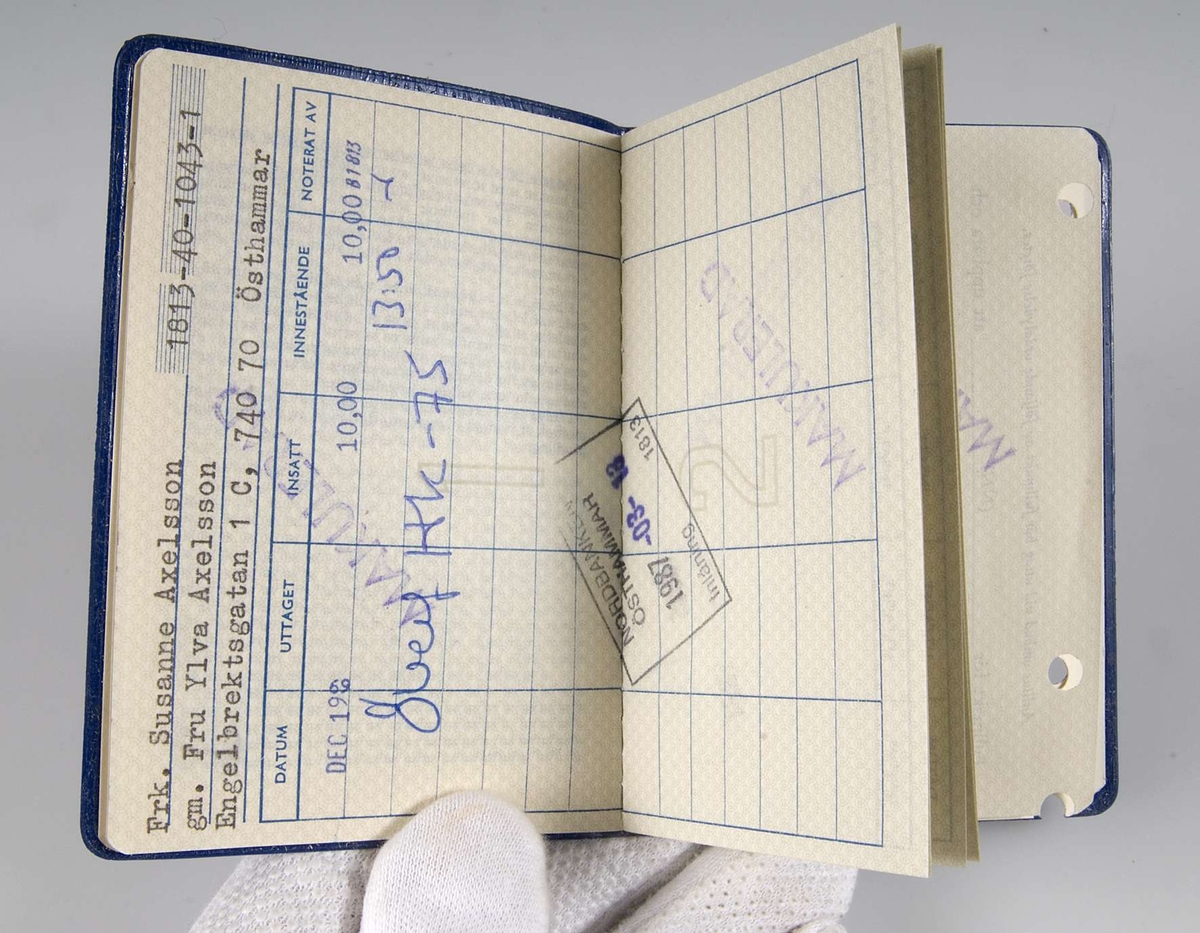 Frk. Susanne Axelsson 1813-40-1043-1
gm. Fru Ylva Axelsson
Engelbrektsgatan 1 C, 740 70 Östhammar
DATUM UTTAGET INSATT INNESTÅENDE NOTERAT AV
DEC 198 10,00 10,00 81813
Överf Hk-75 13:50
MAKULERAD
NORDBANKEN
ÖSTHAMMAR
1987-03-18
Inlåning 1813
MAKULERAD
MA
1
2